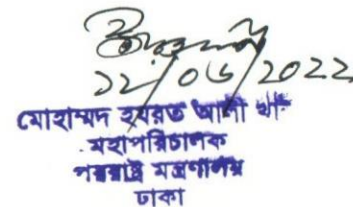 ১২/০৬/2022
মোহাম্মদ হযরত আলী খান
মহাপরিচালক
পররাষ্ট্র মন্ত্রণালয়
ঢাকা